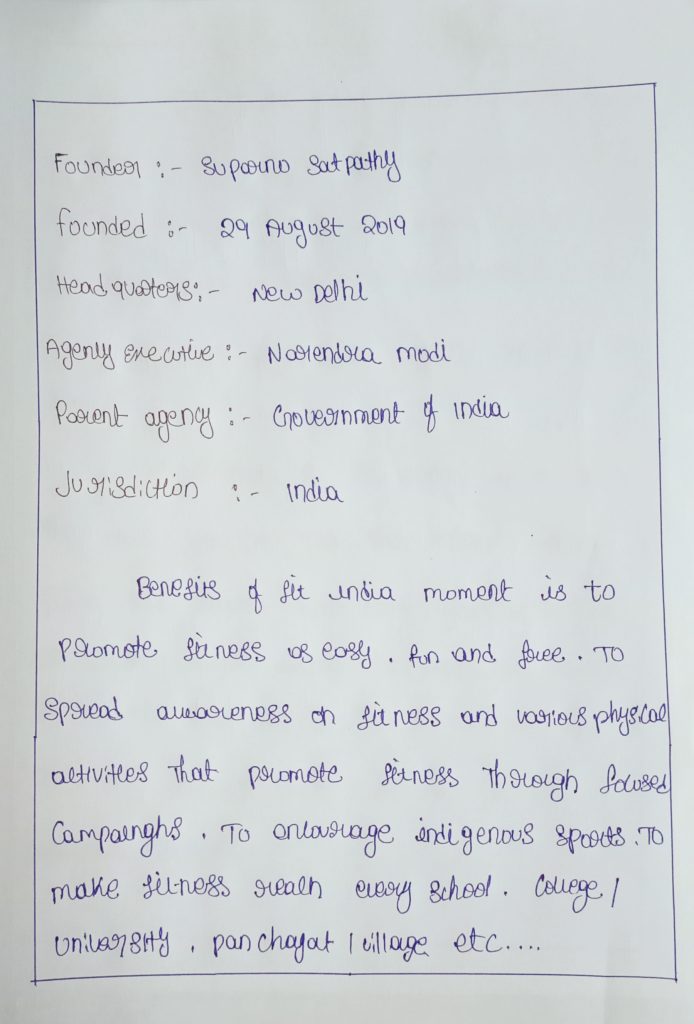 Founder :- Suporno Satpathy
founded :- 29 August 2019
Headquaters:- New Delhi
Agency executive :- Narendra modi
Parent agency :- Government of India
Jurisdiction :- India
Benefits of fit india moment is to
promote fitness as easy, fun and free. To
spread awareness on fitness and various physical
activities that promote fitness through focused
Campaenghs. To encourage indigenous sports. To
make fitness reach every school. College/
University, panchayat / village etc....